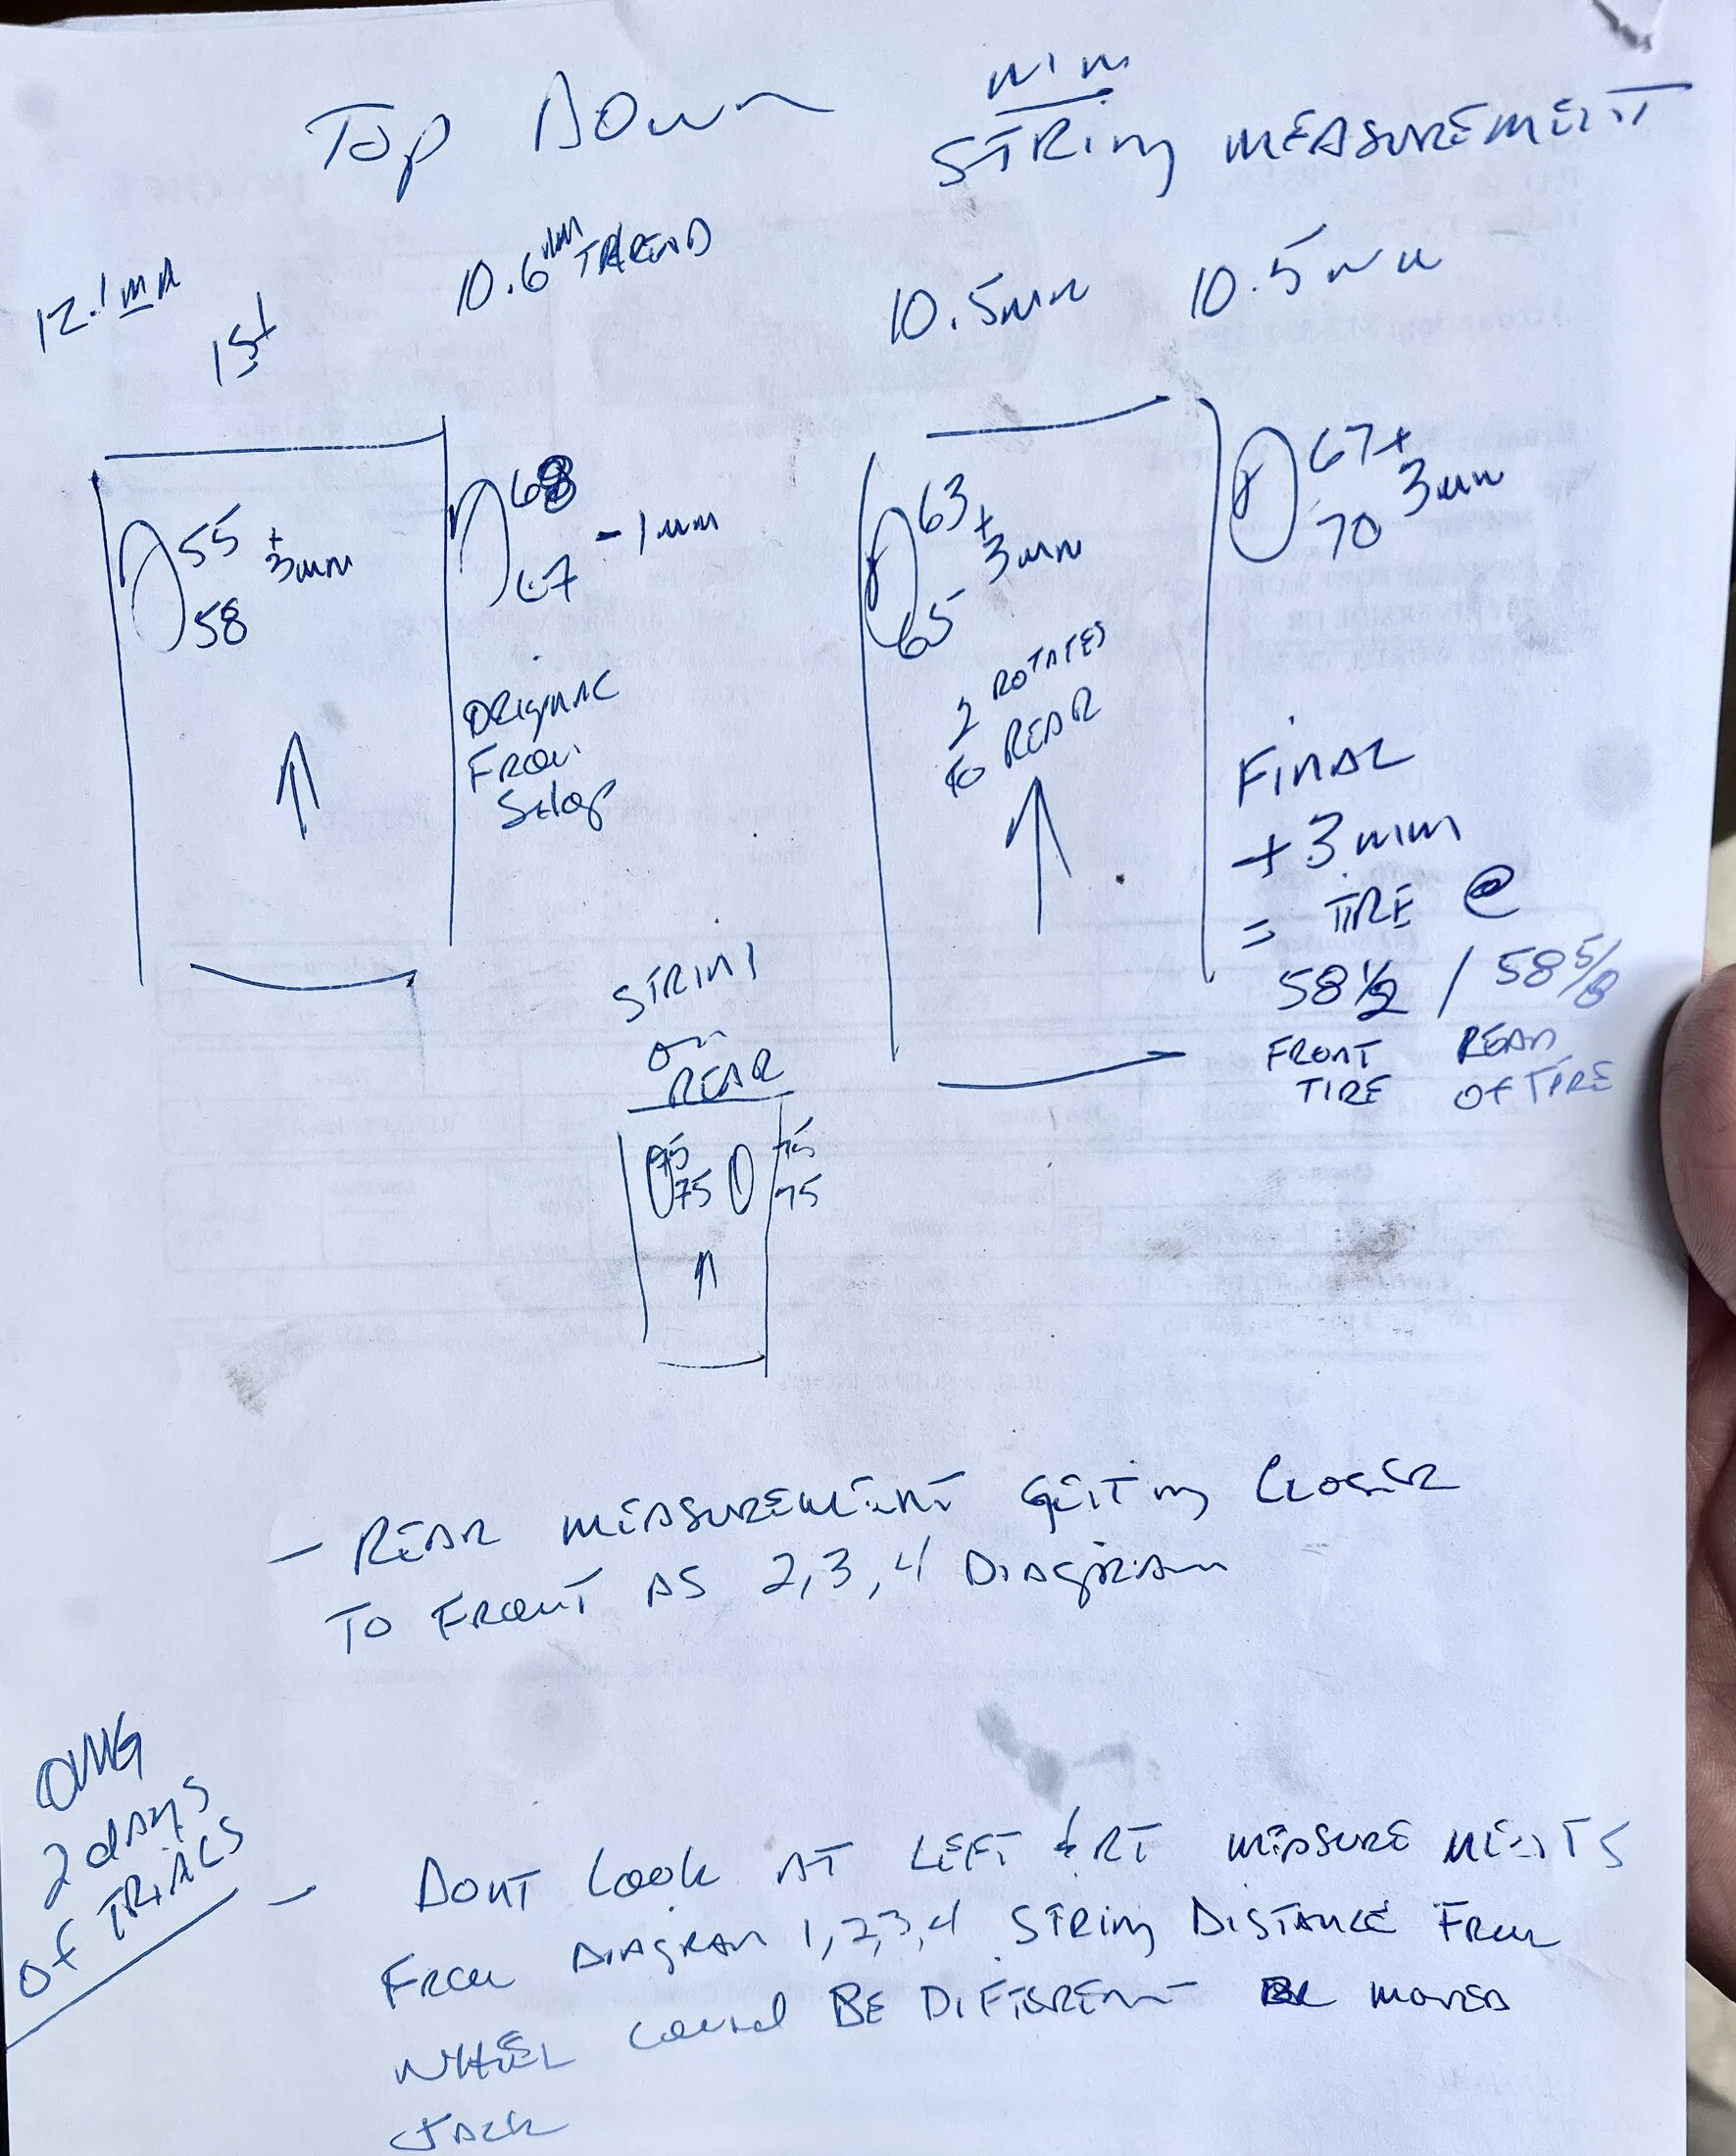 Top Down
mm
STRING MEASUREMENT
12.1mm
1st
10.6mm TREAD
10.5mm
10.5mm
55 + 3mm
58
68
67 - 1mm
ORIGINAL
FROM
63 + 3mm
65
2 ROTATES
to REAR
67 + 3mm
70
FINAL
+ 3 mm
= TIRE @
58 1/2 / 58 5/8
FRONT TIRE
REAR OF TIRE
STRING
on
REAR
75 75
75 75
- REAR MEASUREMENT GETTING CLOSER
TO FRONT AS 2,3,4 DIAGRAM
OMG
2 days
of TRIALS
- DONT Look AT LEFT & RT MEASUREMENTS
FROM DIAGRAM 1,2,3,4 STRING DISTANCE FROM
WHEEL could BE DIFFERENT MOVED
JACK